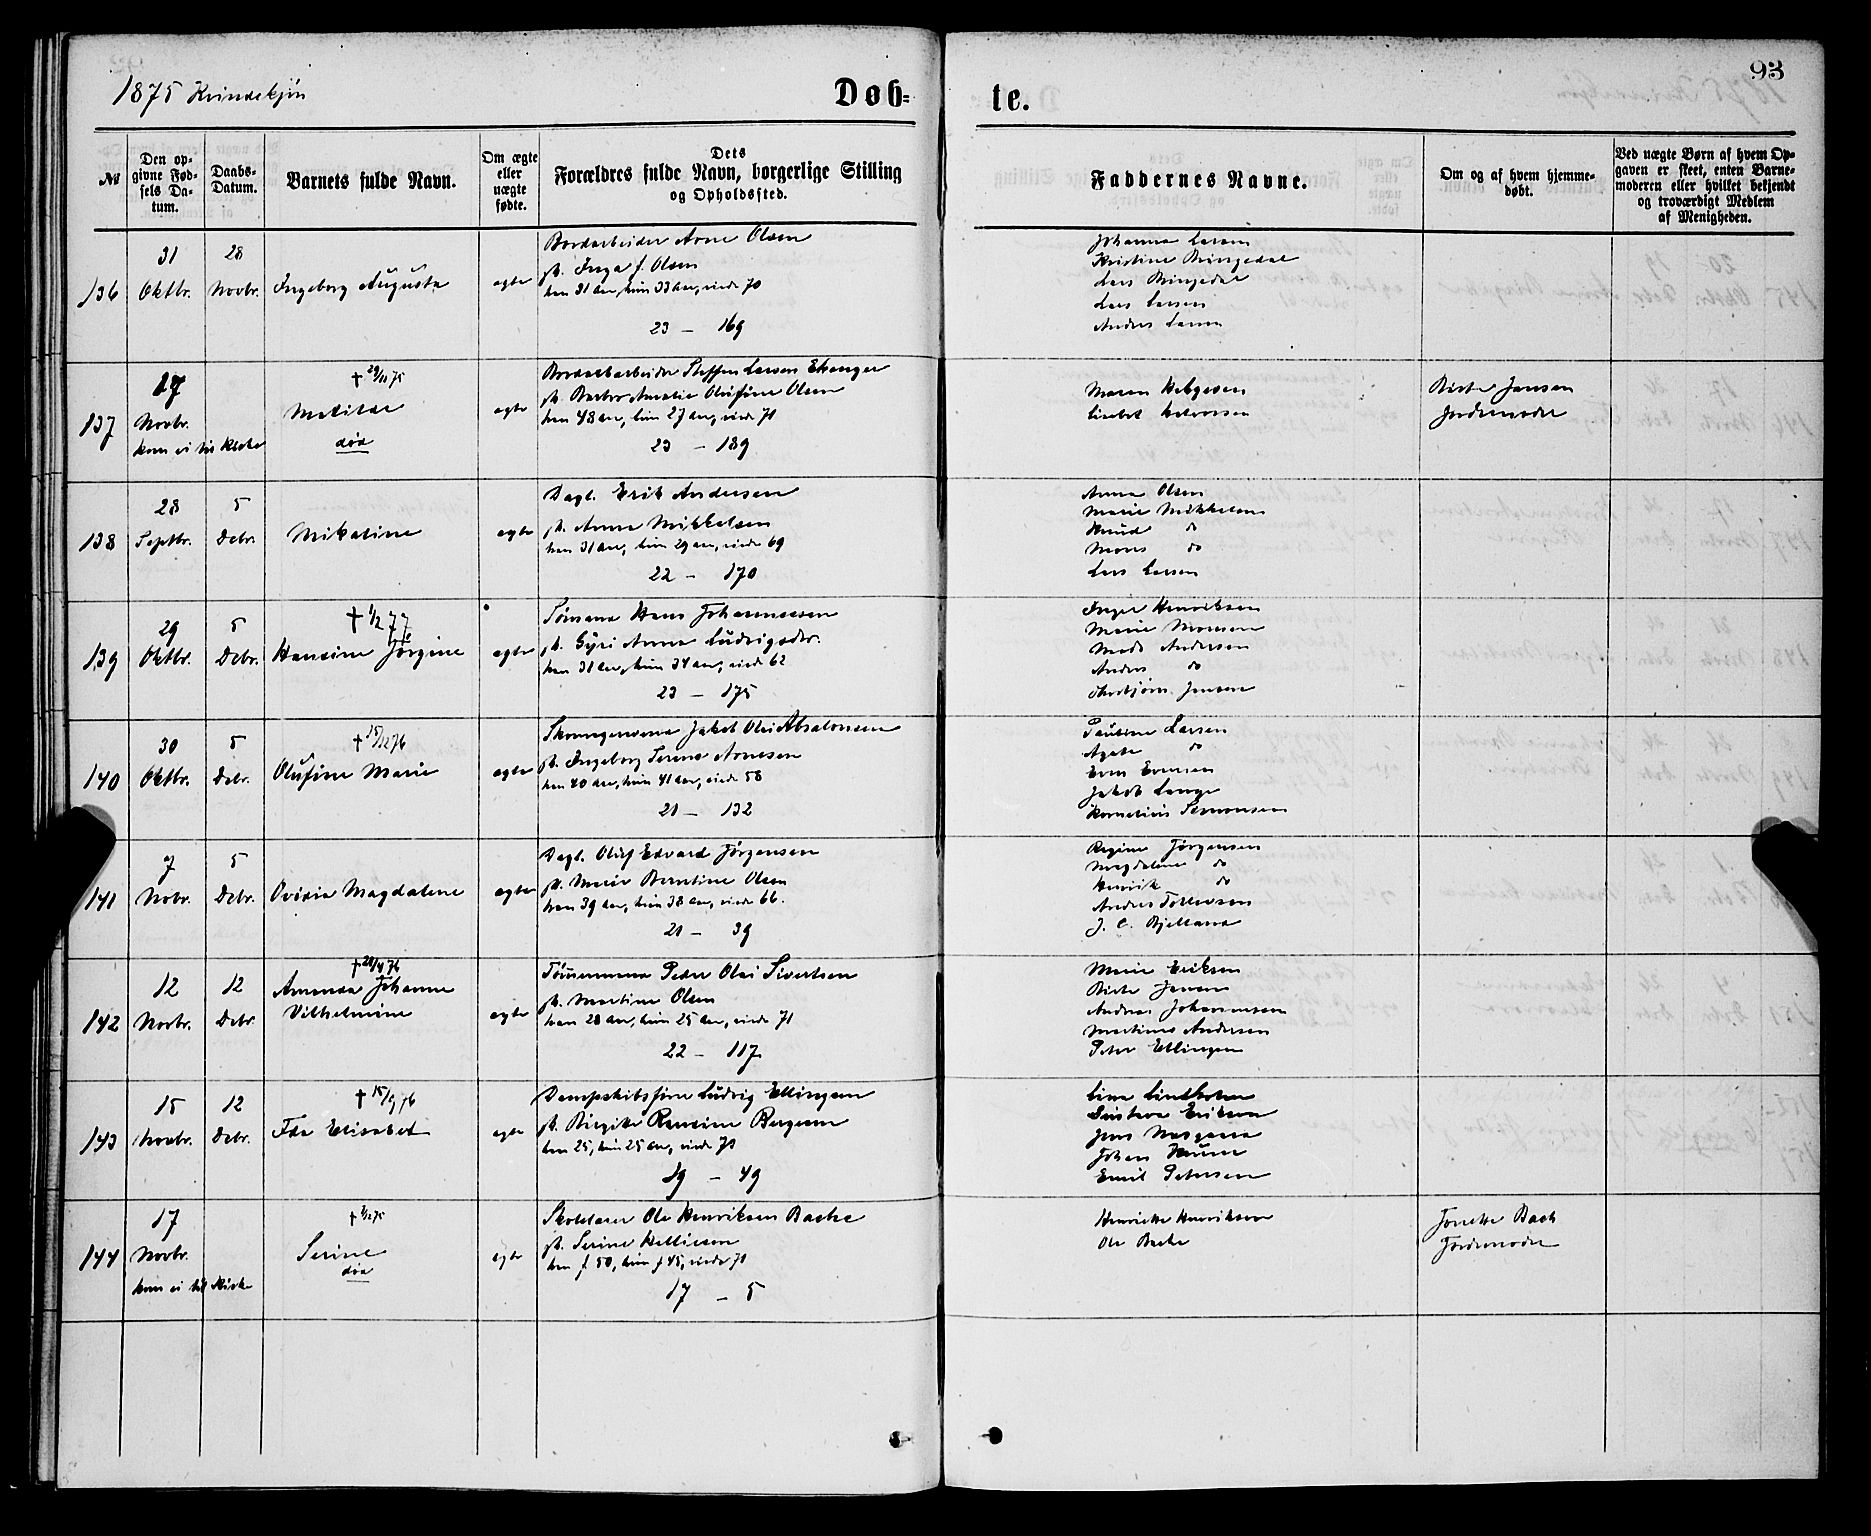 1875 Kvindekjön
Døb-
te.
93
№
Den op-
givne Fød-
sels Da-
tum.
Daabs-
Datum.
Barnets fulde Navn.
Om ægte
eller
uægte
fødte.
Dets
Forældres fulde Navn, borgerlige Stilling
og Opholdssted.
Faddernes Navne.
Om og af hvem hjemme-
døbt.
Ved uægte Børn af hvem Op-
gaven er skeet, enten Barne-
moderen eller hvilket bekjendt
og troværdigt Medlem
af Menigheden.
136
31
Oktbr.
28
Novbr.
Ingeborg Augusta
ægte
Bordarbeider Arne Olsen
Inga f. Olsen
han 31 aar, hun 33 aar, viede 70
23 – 169
Johanna Larsen
Kristine Bringedal
Lars Bringedal
Lars Larsen
Anders Larsen
137
17
Novbr.
kom ei til Kirke
† 29/11 75
Matilde
död
ægte
Bordarbeider Steffen Larsen
Barbro Amalie Olufine Olsen
han 48 aar, hun 27 aar, viede 71
23 – 189
Maren Helgesen
Lisebet Halvorsen
Birte Jansen
Jordemoder
138
28
Septbr.
5
Debr.
Mikaline
ægte
Dagl. Erik Andersen
Anna Mikkelsen
han 31 aar, hun 29 aar, viede 69
22 – 170
Anna Olsen
Marie Mikkelsen
Knud do
Mons do
Lars Larsen
139
29
Oktbr.
5
Debr.
† 1/2 77
Hansine Jörgine
ægte
Sömand Hans Johannessen
Gyri Anna Ludvigsdtr.
han 31 aar, hun 34 aar, viede 62
23 – 175
Inger Henriksen
Marie Monsen
Mads Andersen
Anders do
Jensen
140
30
Oktbr.
5
Debr.
† 15/12 76
Olufine Marie
ægte
Jakob Olai Absalonsen
Ingeborg Serene Arnesen
han 40 aar, hun 41 aar, viede 58
21 – 132
Pauline Larsen
Agate do
Even Evensen
Jakob Lange
Kornelius Simonsen
141
7
Novbr.
5
Debr.
Ovidia Magdalene
ægte
Dagl. Oluf Edvard Jörgensen
Maria Berntine Olsen
han 39 aar, hun 38 aar, viede 66.
21 – 39
Regine Jörgensen
Magdalene do
Henrik do
Anders Tollevsen
J. C. Bjelland
142
12
Novbr.
12
Debr.
† 24/4 76
Amanda Johanne
Vilhelmine
ægte
Tömmermand Peder Olai Sivertsen
Martine Olsen
han 28 aar, hun 25 aar, viede 71
22 – 117
Marie Eriksen
Birte Jansen
Andreas Johannessen
Martinus Andersen
Peter Ellingsen
143
15
Novbr.
12
Debr.
† 15/9 76
Ida Elisabet
ægte
Dampskibsförer Ludvig Ellingsen
Birgitte Ransine Bergesen
han 25, hun 25 aar, viede 71
19 – 49
Line Lindholm
Gustava Eriksen
Jens Norgaard
Johan
Emil Petersen
144
17
Novbr.
kom ei til Kirke
† 8/12 75
Serine
död
ægte
Skolelærer Ole Henriksen Bache
Serine Kelliesen
han f 50, hun f 45, viede 71
17 – 5
Henriette Henriksen
Ole Bache
Jonette Bach
Jordemoder